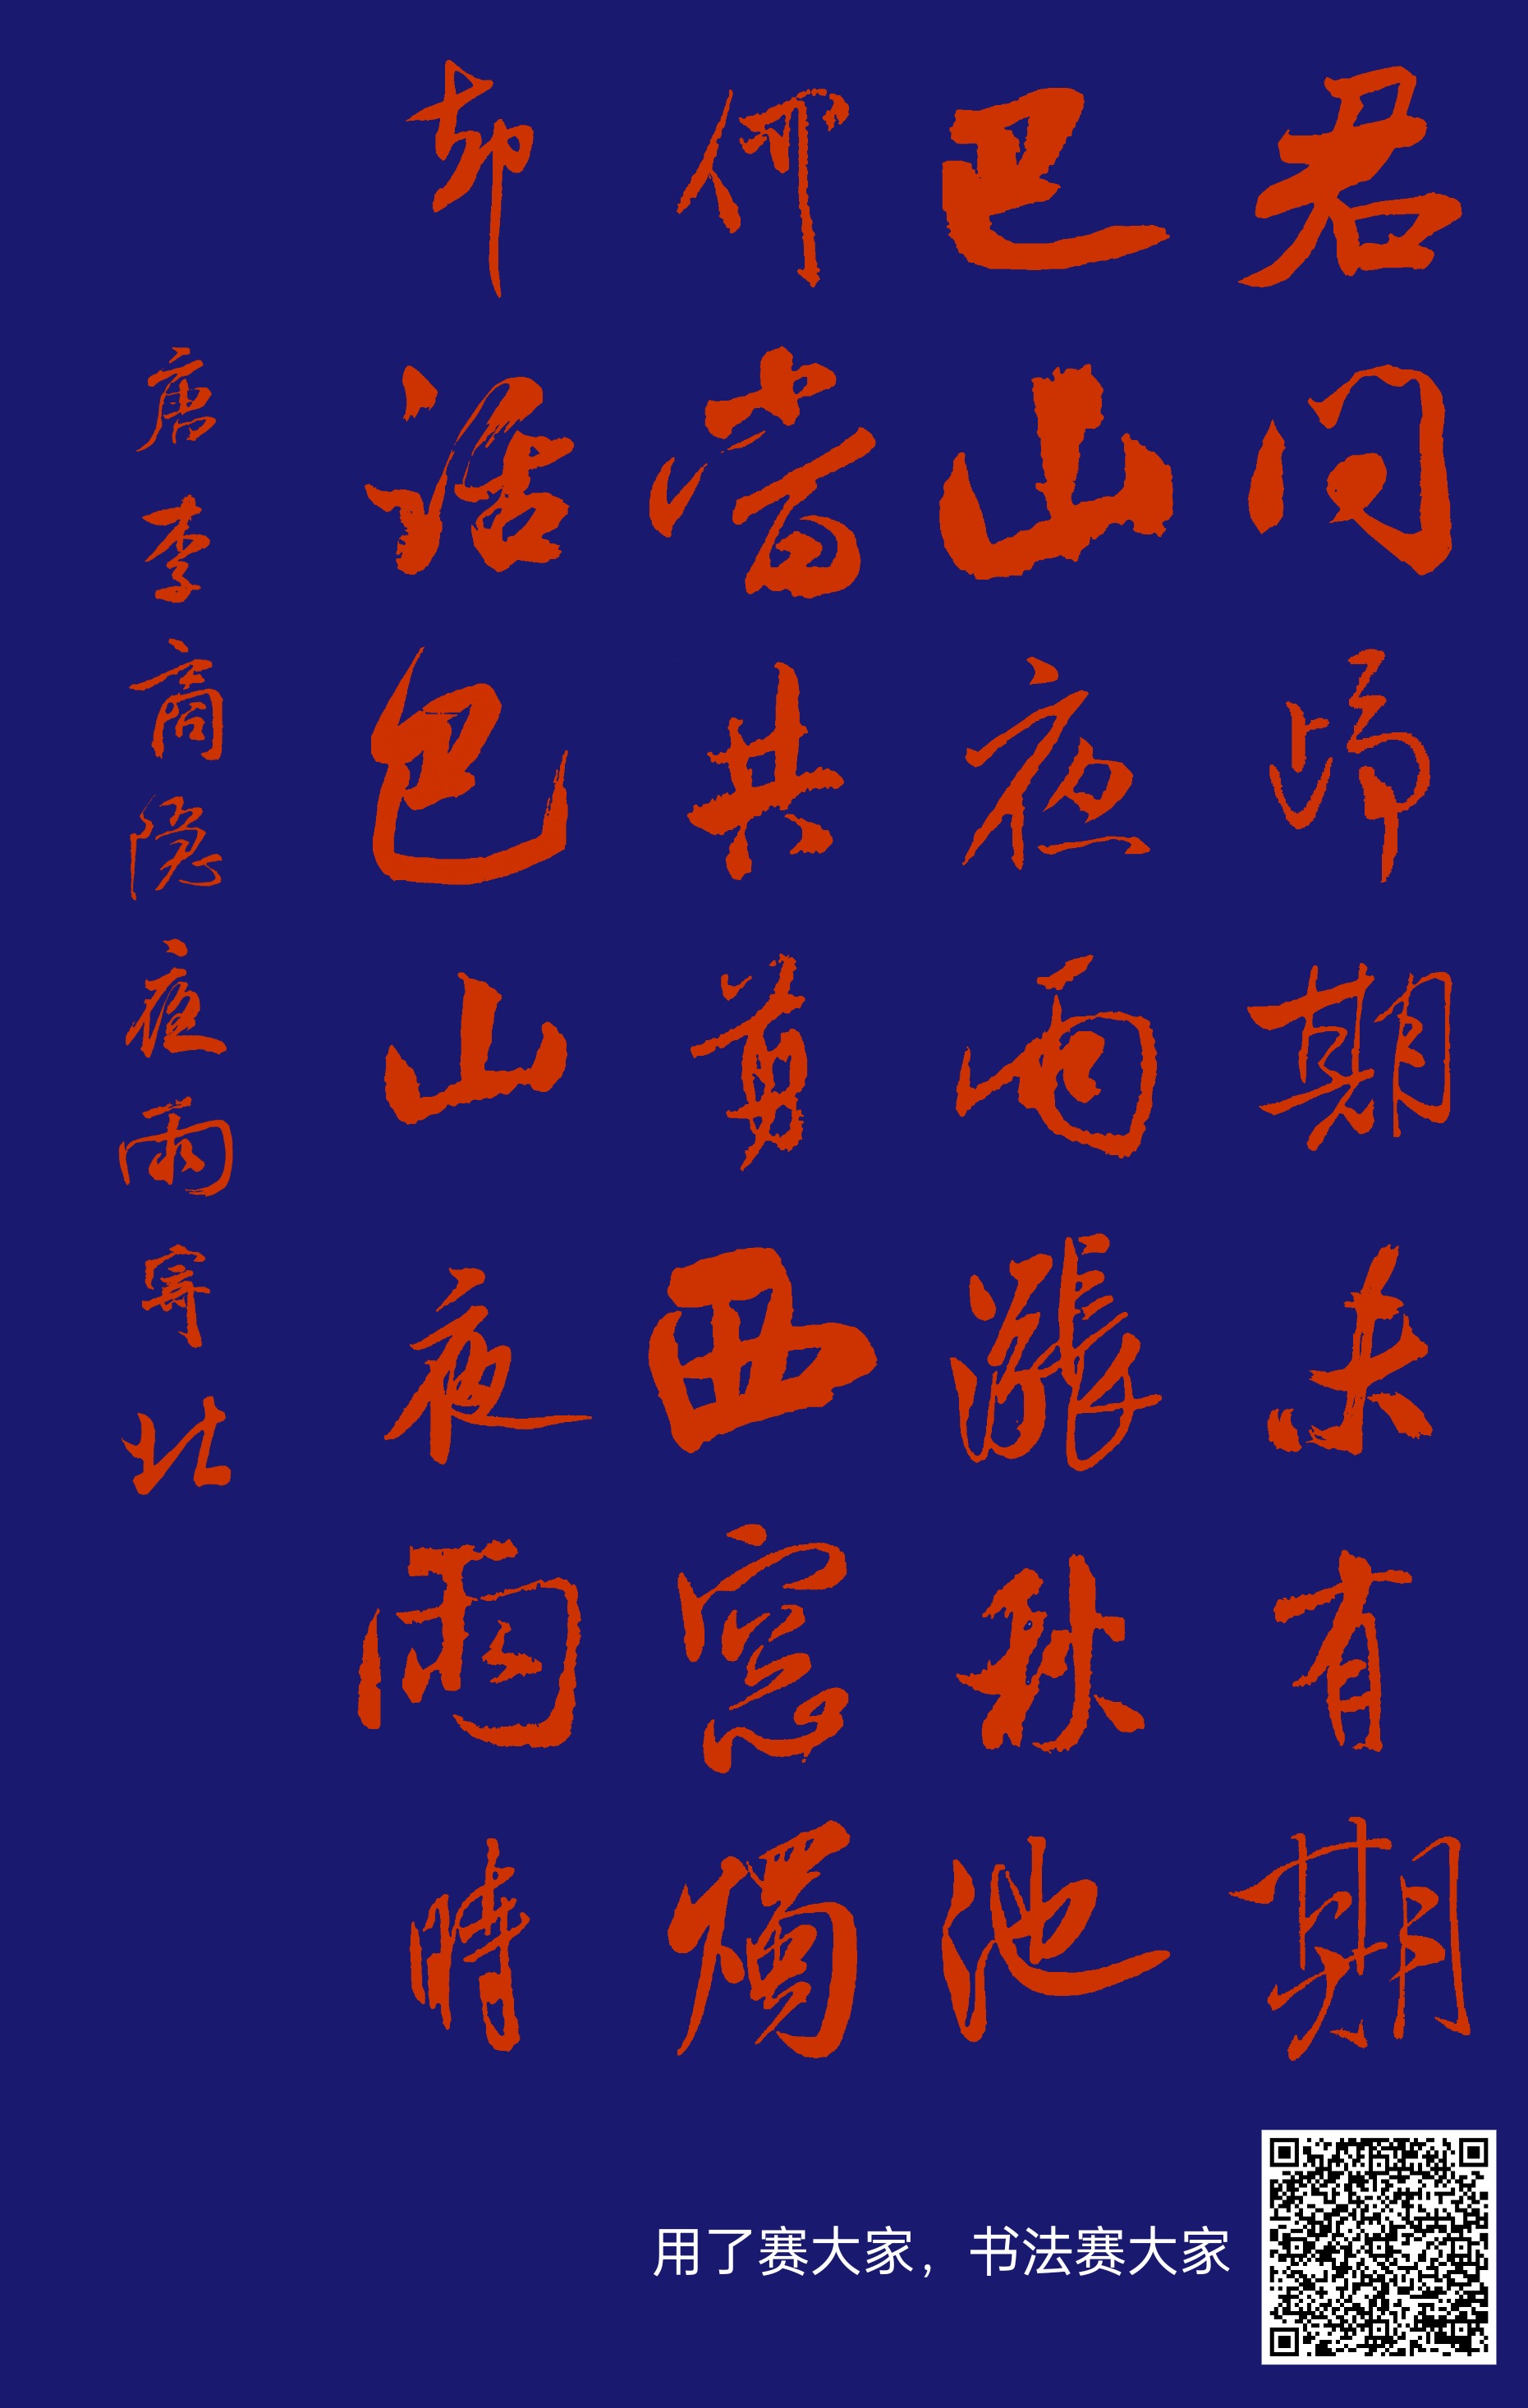 君問歸期未有期
巴山夜雨漲秋池
何當共剪西窗燭
却話巴山夜雨時
唐李商隱夜雨寄北
用了赛大家，书法赛大家